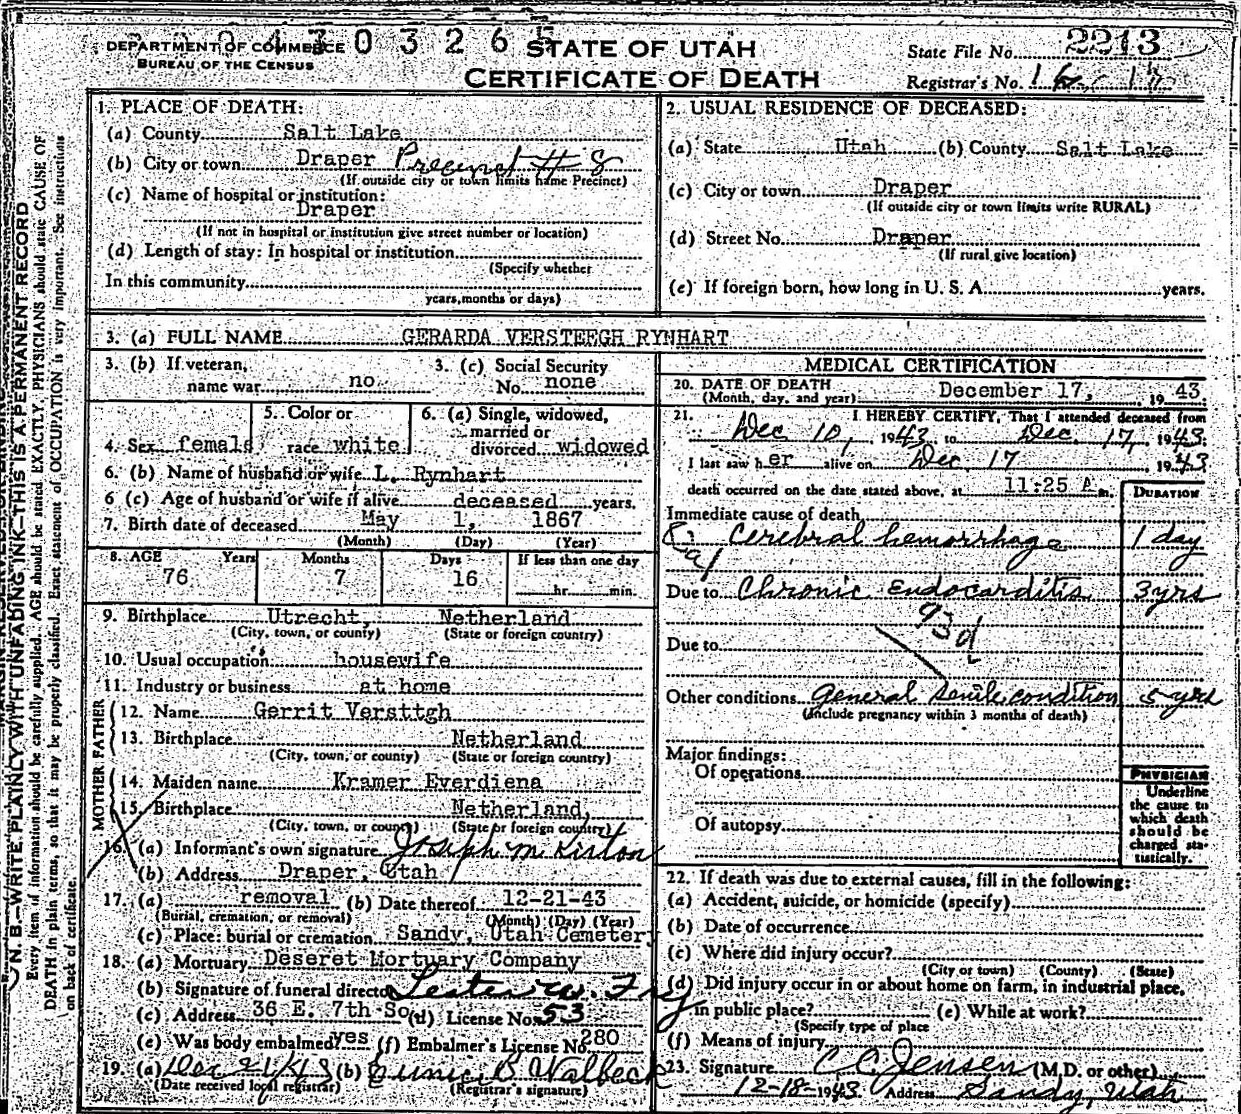 DEPARTMENT OF COMMERCE
BUREAU OF THE CENSUS
0 3 2 6 5
STATE OF UTAH
CERTIFICATE OF DEATH
State File No. 2213
Registrar's No.
1. PLACE OF DEATH:
(a) County Salt Lake
(b) City or town Draper Precinct # 8
(If outside city or town limits name Precinct)
(c) Name of hospital or institution:
Draper
(If not in hospital or institution give street number or location)
(d) Length of stay: In hospital or institution
(Specify whether
In this community
years, months or days)
2. USUAL RESIDENCE OF DECEASED:
(a) State Utah (b) County Salt Lake
(c) City or town Draper
(If outside city or town limits write RURAL)
(d) Street No. Draper
(If rural give location)
(e) If foreign born, how long in U. S. A. years.
3. (a) FULL NAME GERARDA VERSTEEGH RYNHART
3. (b) If veteran,
name war no
3. (c) Social Security
No. none
4. Sex female
5. Color or
race white
6. (a) Single, widowed,
married or
divorced widowed
6. (b) Name of husband or wife L. Rynhart
6 (c) Age of husband or wife if alive deceased years.
7. Birth date of deceased May 1, 1867
(Month) (Day) (Year)
8. AGE Years Months Days If less than one day
76 7 16 hr. min.
9. Birthplace Utrecht, Netherland
(City, town, or county) (State or foreign country)
10. Usual occupation housewife
11. Industry or business at home
FATHER
12. Name Gerrit Versttgh
13. Birthplace Netherland
(City, town, or county) (State or foreign country)
MOTHER
14. Maiden name Kramer Everdiena
15. Birthplace Netherland,
(City, town, or county) (State or foreign country)
16. (a) Informant's own signature Joseph M Kirton
(b) Address Draper, Utah
17. (a) removal (b) Date thereof 12-21-43
(Burial, cremation, or removal) (Month) (Day) (Year)
(c) Place: burial or cremation Sandy, Utah Cemetery
18. (a) Mortuary Deseret Mortuary Company
(b) Signature of funeral director Lester W. Fry
(c) Address 36 E. 7th So. (d) License No. 53
(e) Was body embalmed yes (f) Embalmer's License No. 280
19. (a) Dec 21/43 (b) Eunice B Walbeck
(Date received local registrar) (Registrar's signature)
MEDICAL CERTIFICATION
20. DATE OF DEATH
(Month, day, and year) December 17, 1943.
21. I HEREBY CERTIFY, That I attended deceased from
Dec 10, 1943 to Dec. 17, 1943.
I last saw her alive on Dec. 17, 1943
death occurred on the date stated above, at 11:25 A m.
DURATION
Immediate cause of death
Cerebral hemorrhage 1 day
Due to Chronic endocarditis 3 yrs
93d
Due to
Other conditions General Senile condition 5 yrs
(Include pregnancy within 3 months of death)
Major findings:
Of operations
Of autopsy
PHYSICIAN
Underline
the cause to
which death
should be
charged sta-
tistically.
22. If death was due to external causes, fill in the following:
(a) Accident, suicide, or homicide (specify)
(b) Date of occurrence
(c) Where did injury occur?
(City or town) (County) (State)
(d) Did injury occur in or about home on farm, in industrial place,
in public place? (e) While at work?
(Specify type of place
(f) Means of injury
23. Signature C. C. Jensen (M.D. or other)
12-18-1943 Address Sandy, Utah
N. B.—WRITE PLAINLY WITH UNFADING INK—THIS IS A PERMANENT RECORD
Every item of information should be carefully supplied. AGE should be stated EXACTLY. PHYSICIANS should state CAUSE OF
DEATH in plain terms, so that it may be properly classified. Exact statement of OCCUPATION is very important. See instructions
on back of certificate.